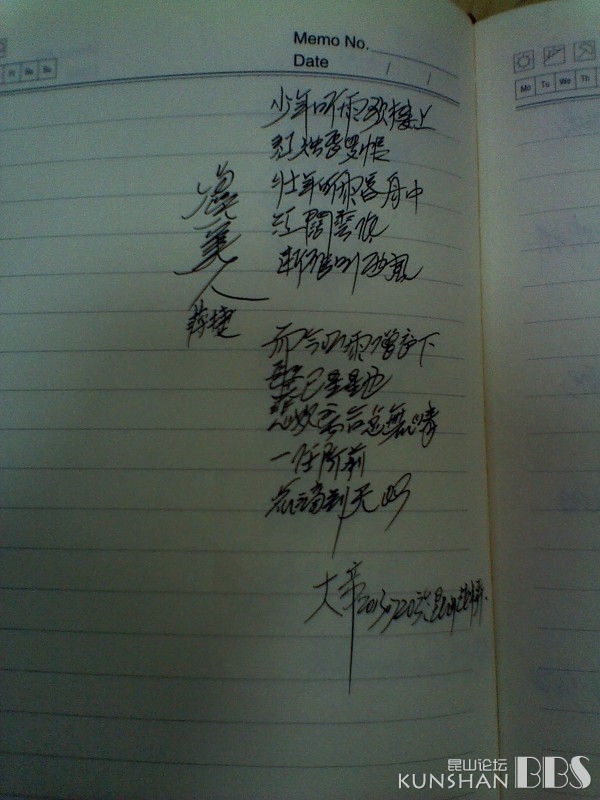 Memo No.
Date / /
Fr Sa Su
Mo Tu We Th
少年听雨歌楼上
红烛昏罗帐
壮年听雨客舟中
江阔雲低
断雁叫西風
虞美人
蒋捷
而今听雨僧庐下
鬓已星星也
悲欢离合总無情
一任阶前
点滴到天明
大帝
昆山论坛
KUNSHAN BBS